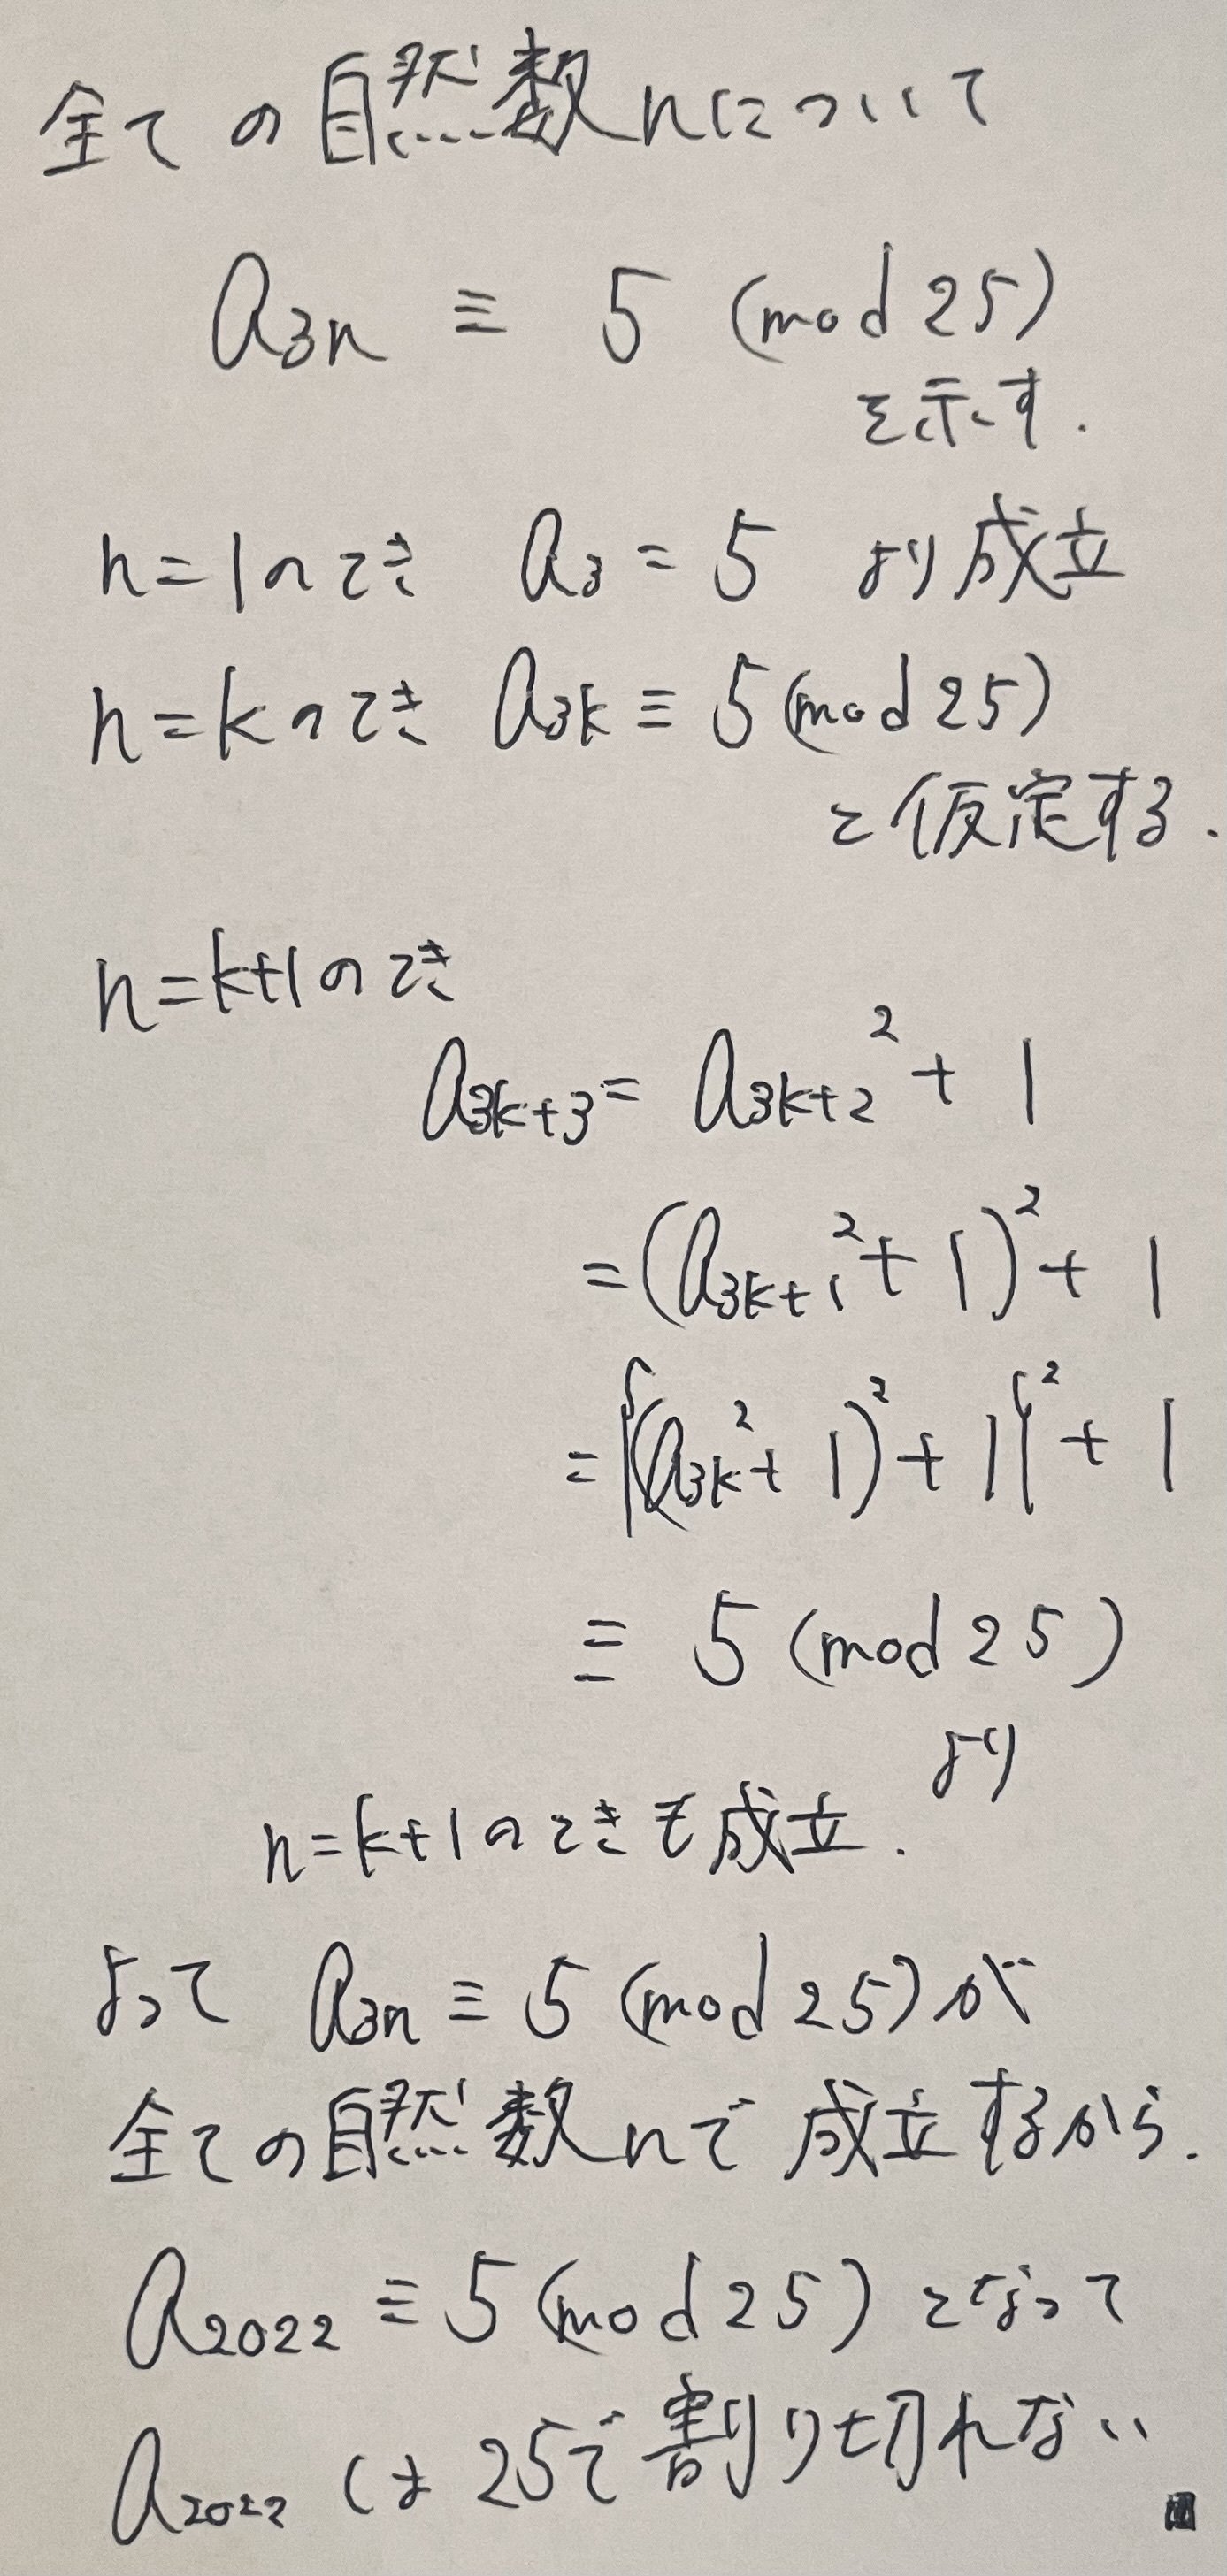 全ての自然数nについて
a₃ₙ ≡ 5 (mod 25)
を示す.
n=1のとき a₃ = 5 より成立
n=kのとき a₃ₖ ≡ 5 (mod 25)
と仮定する.
n=k+1のとき
a₃ₖ₊₃ = a₃ₖ₊₂² + 1
= (a₃ₖ₊₁² + 1)² + 1
= {(a₃ₖ² + 1)² + 1}² + 1
≡ 5 (mod 25)
より
n=k+1のときも成立.
よって a₃ₙ ≡ 5 (mod 25) が
全ての自然数nで成立するから.
a₂₀₂₂ ≡ 5 (mod 25) となって
a₂₀₂₂ は 25で割り切れない